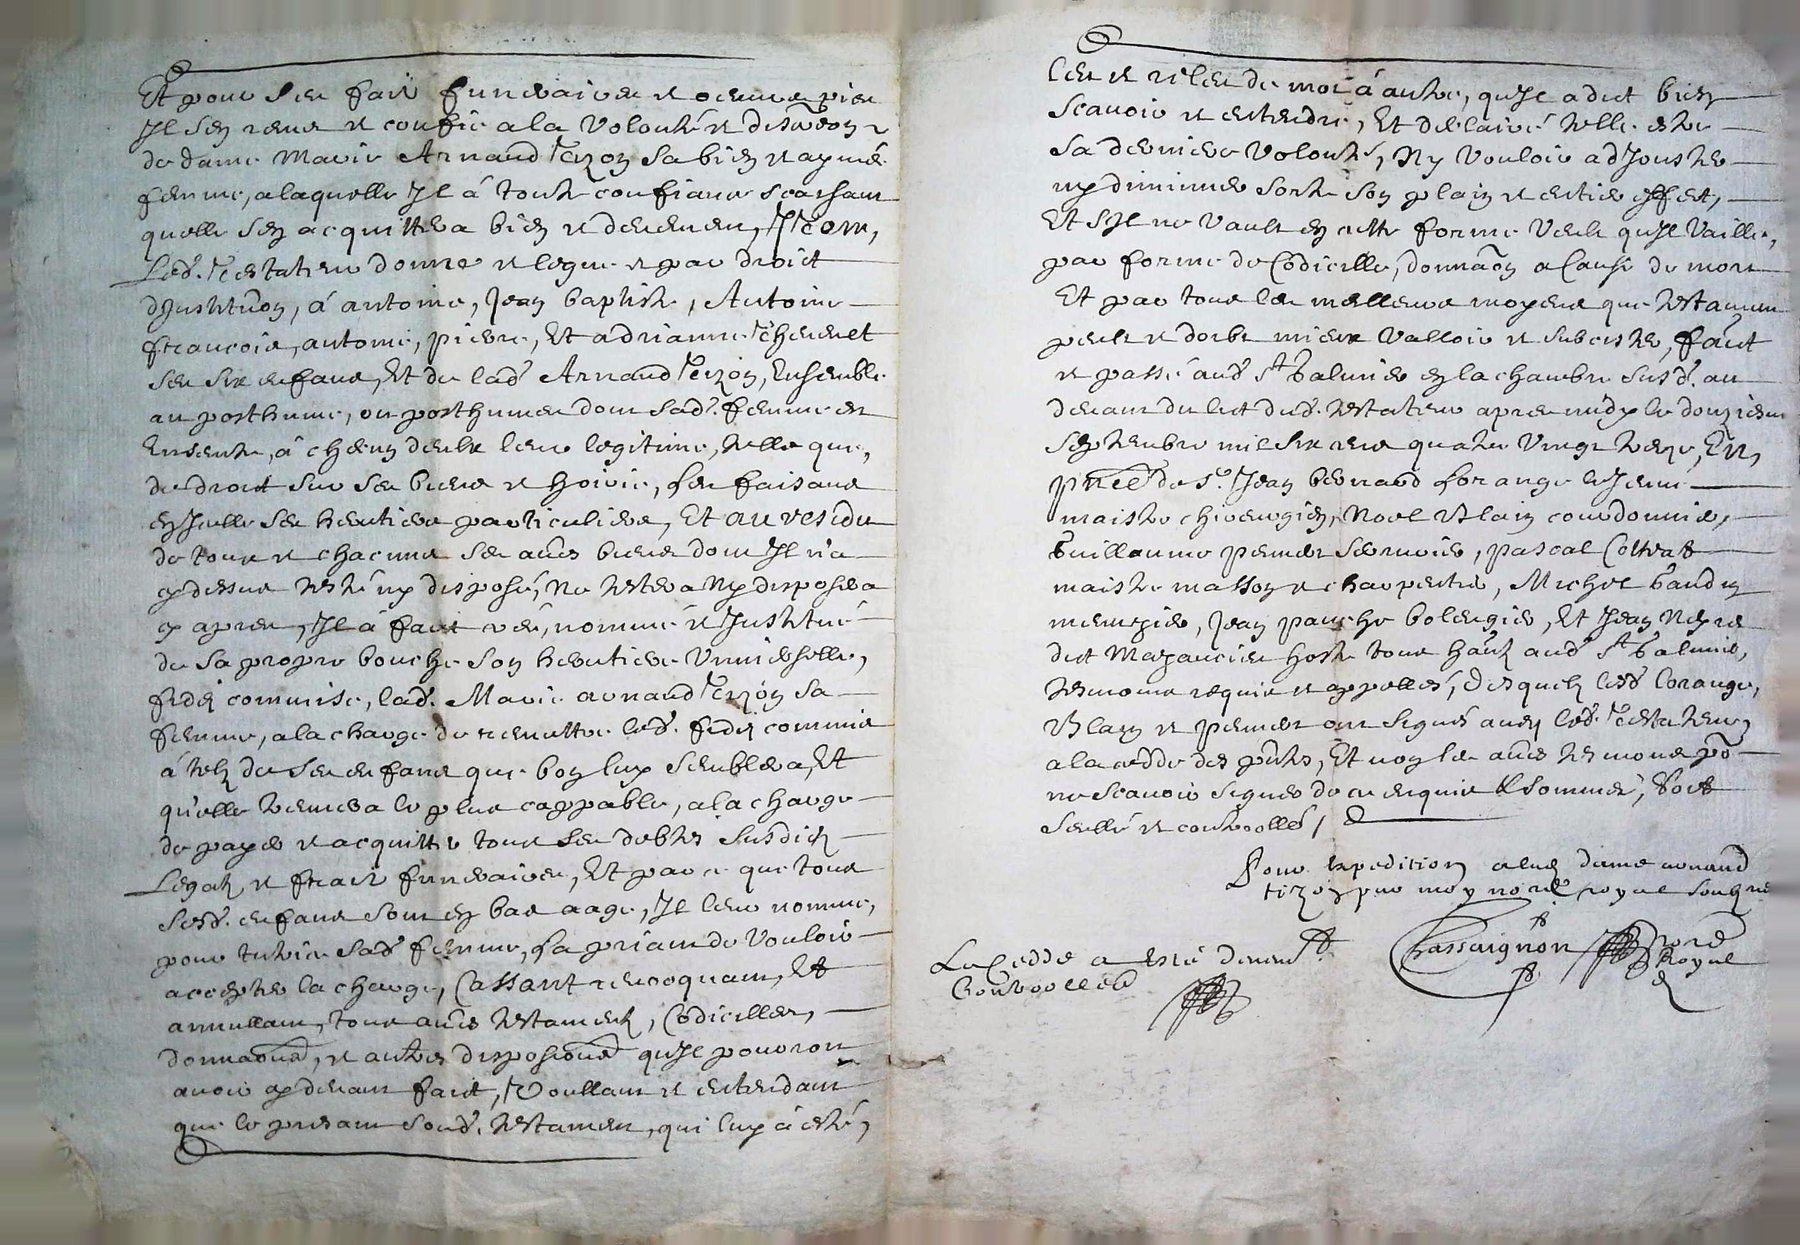 Et pour ses fais funeraires et oeuvres pies
Il s'en reme et confie a la volonté et discreon
de dame Marie Arnaud Tezon sa bien et aymée
femme, a laquelle Il á toute confiance scachant
quelle s'en acquittera bien et deuement, Item,
Led. Testateur donne et legue et par droict
d'Institũon, á antoine, Jean baptiste, Antoine
francois, antoine, pierre, Et adrianne Thevenet
ses six enfans, Et de lad Arnaud Tezon, Ensemble
au posthume, ou posthumes dont sad. femme est
Enseinte, á chãcun d'eulx leur legitime, telle que,
de droit sur ses biens et hoirie, les faisant
en Icelle ses heritiers particuliers, Et au residu
de tous et chacuns ses aũes biens dont Il n'a
cy dessus testé ny disposé, Ne testera Ny disposera
cy apres, Il á fait creé, nommé et Institué
de sa propre bouche son heritiere Universelle,
fidei commise, lad. Marie arnaud Tezon sa
femme, a la charge de remettre led. fidei commis
á telz de ses enfans que bon luy semblera, Et
qu'elle treuvera le plus cappable, a la charge
de payer et acquitter tous ses debtes susdictz
Legatz et frais funeraires, Et parce que tous
sesd. enfans sont en bas aage, Il leur nomme,
pour tutrice sad femme, la priant de vouloir
accepter la charge, Cassant revocquant, Et
annullant, tous aũes testamentz, Codicilles,
donnaõns, et autres disposiõns qu'Il pouroit
avoir cy devant faict, Voullant et entendant
que le presant soud. testament, qui luy á esté,
leu et releu de mot á autre, qu'Il a dict bien
scavoir et entendre, Et declairé telle estre
sa derniere volonté, Ny vouloir adJouster
ny diminuer sorte son plain et entier effect,
Et s'Il ne vault en cette forme veult qu'Il vaille,
par forme de Codicille, donnaõn a Cause de mort
Et par tous les melleurs moyens que testament
peult et doibt mieux valloir et subcister, faict
et passé aud St galmier en la chambre susd. au
devant du lict dud. testateur apres midy le douziesme
septembre mil six cens quatre vingt treze, En,
pñce de sr. Jean bernard lorange le Jeune
maistre chirurgien, Noel Blain courdonnier,
Guillaume pernet serrurier, pascal Cottrat
maistre masson et charpentier, Michel baudin
menuzier, Jean panche bolengier, Et Jean Neyre
dict Mazancieu hoste tous hãtz aud St galmier,
tesmoins requis et appellés, desquelz lesd lorange,
Blain et pernet ont signés avec led. Testateur
a la cedde des pñtes, Et non les aũes tesmons põ
ne scavoir signer de ce enquis et sommés, doit
scellé et controollé,
Pour Expedition a lad dame arnaud
tizon par moy nore royal soubzné
Chassaignon nore Royal
La Cedde a esté deuemt
Controollée